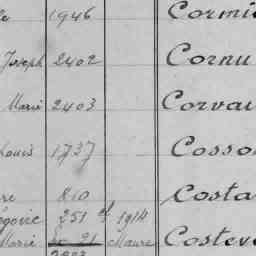 1946 Cormi
Joseph 2402 Cornu
Marie 2403 Corvai
Louis 1737 Cosso
re 810 Costa
égoire 251 et 1914
Marie 91 Maure Costev
2003